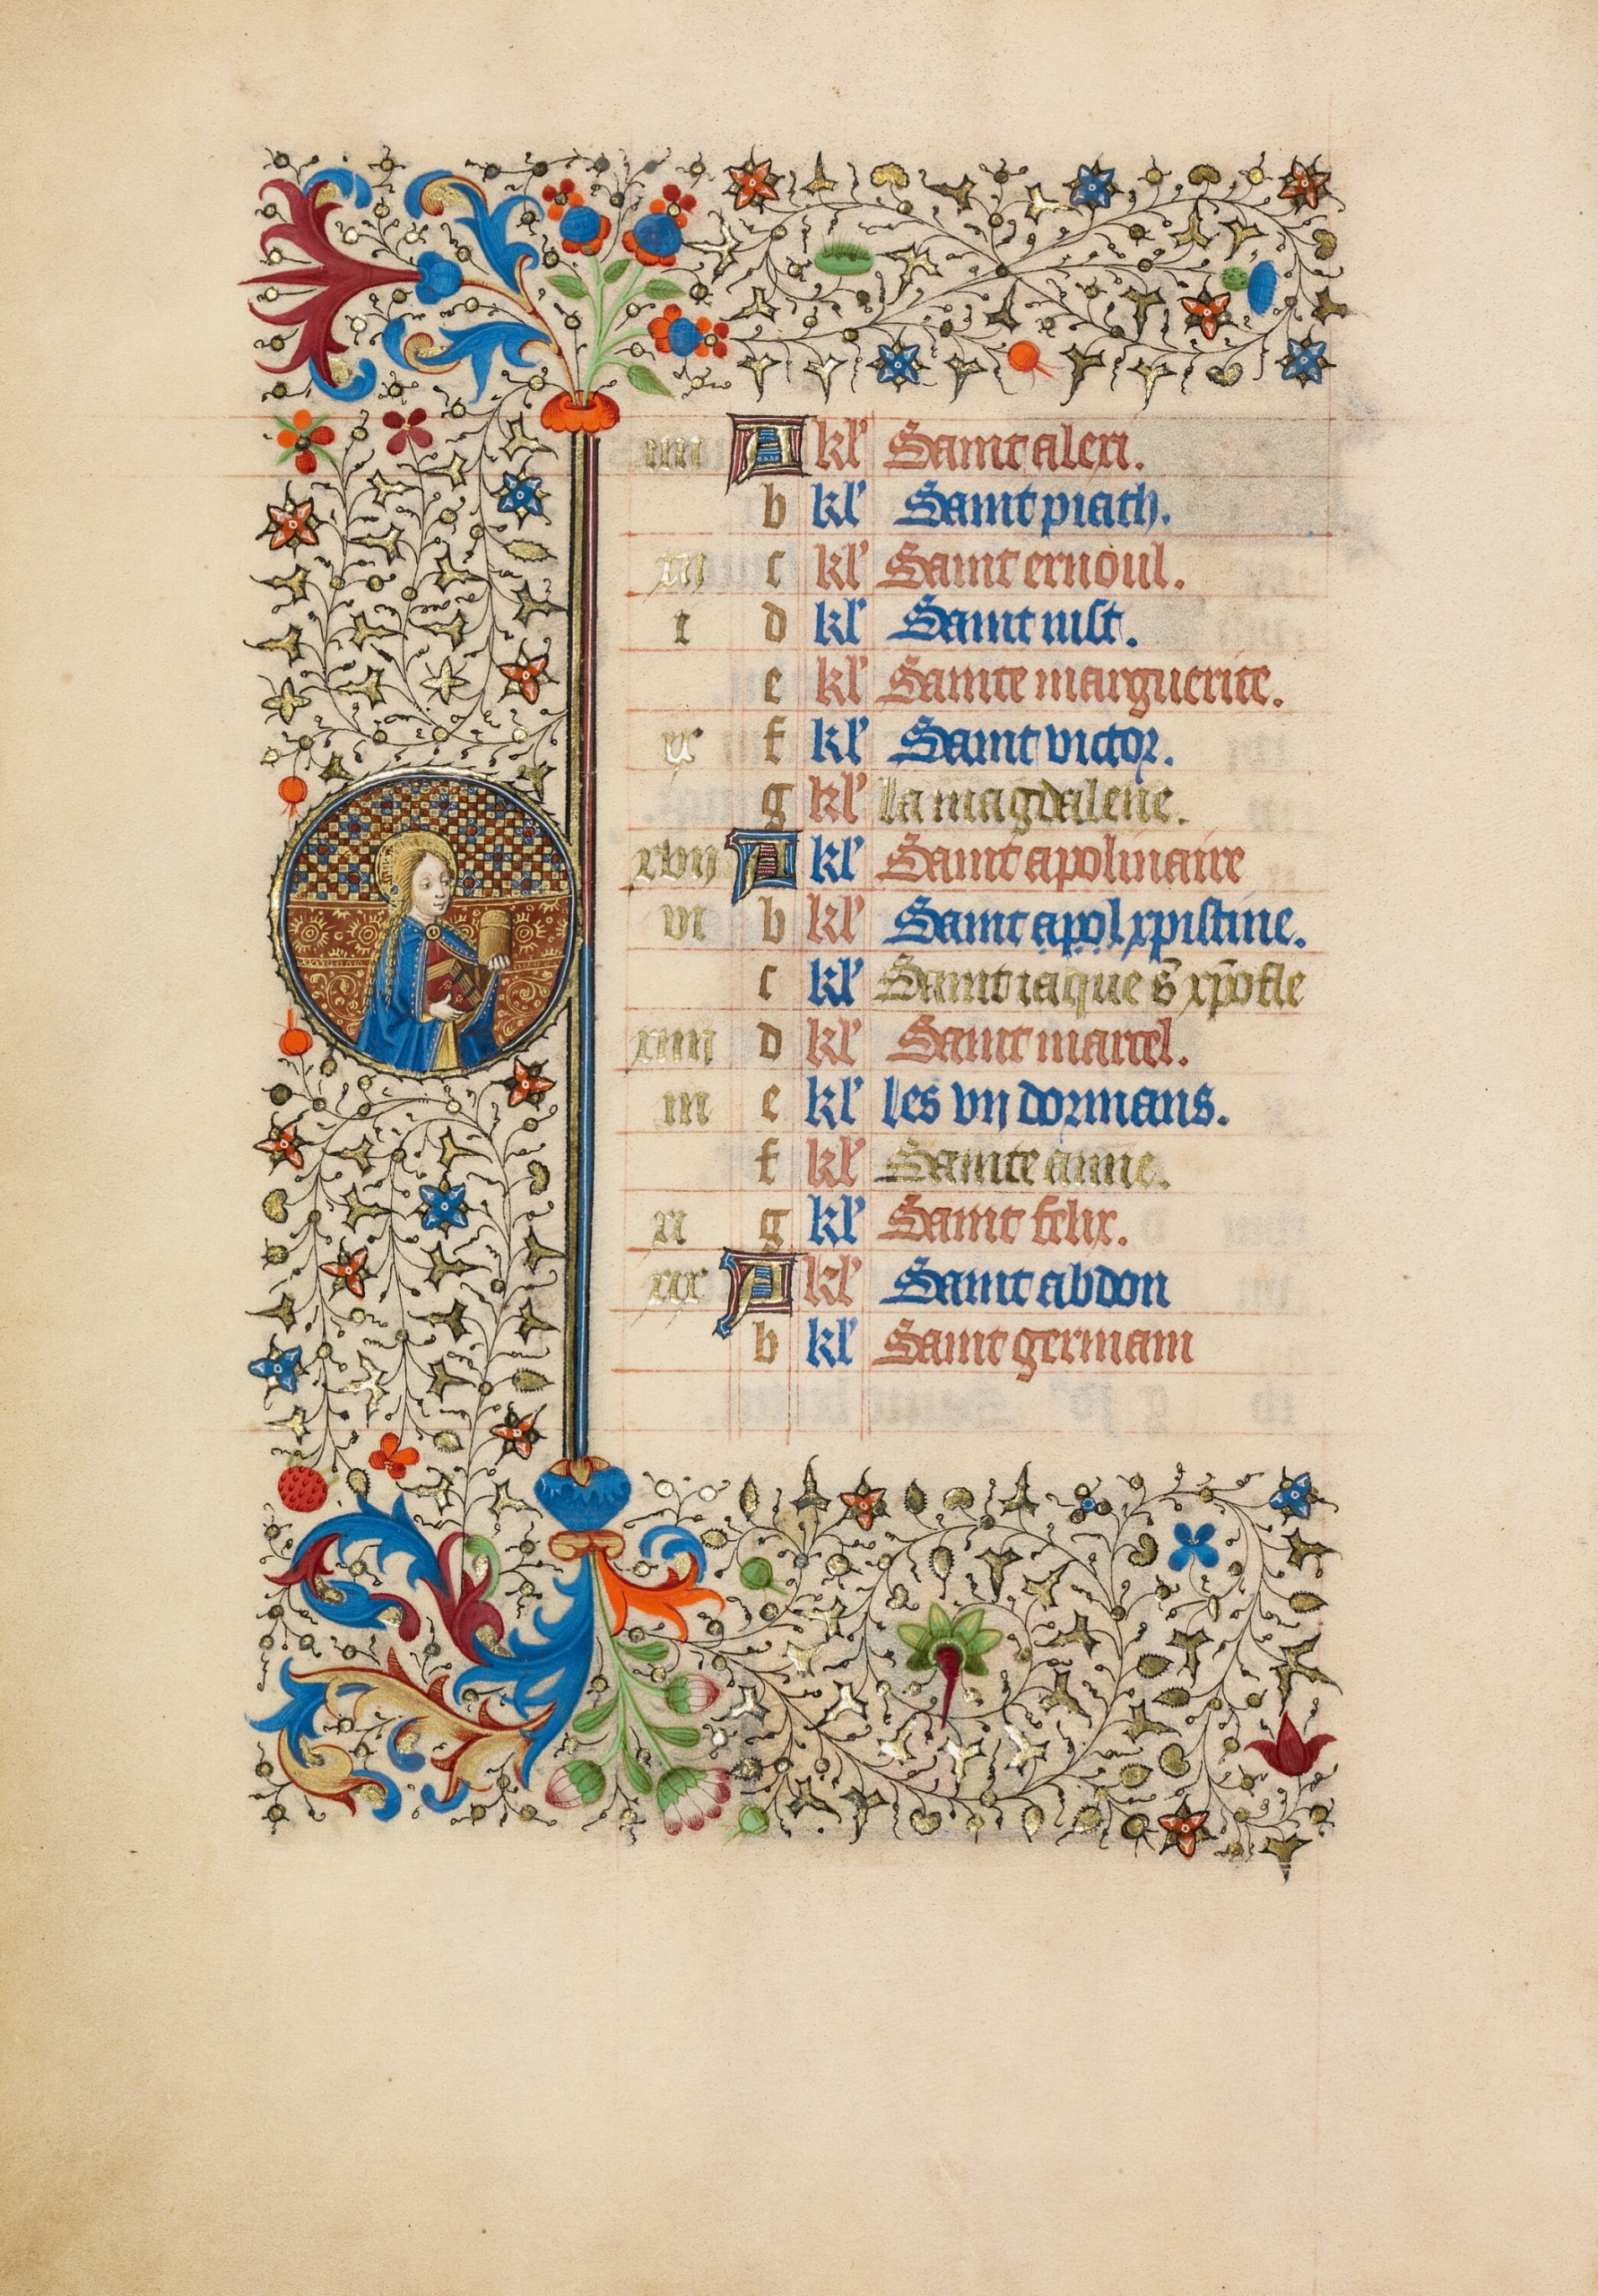 iiii A kl' Saint alexi.
b kl' Saint piath.
xii c kl' Saint ernoul.
i d kl' Saint iust.
e kl' Sainte marguerite.
ix f kl' Saint victor.
g kl' la magdalene.
xvii A kl' Saint apolinaire
vi b kl' Saint apol xpistine.
c kl' Saint iaque s' xpofle
xiiii d kl' Saint marcel.
iii e kl' les vii dormans.
f kl' Sainte anne.
xi g kl' Saint felix.
xix A kl' Saint abdon
b kl' Saint germain